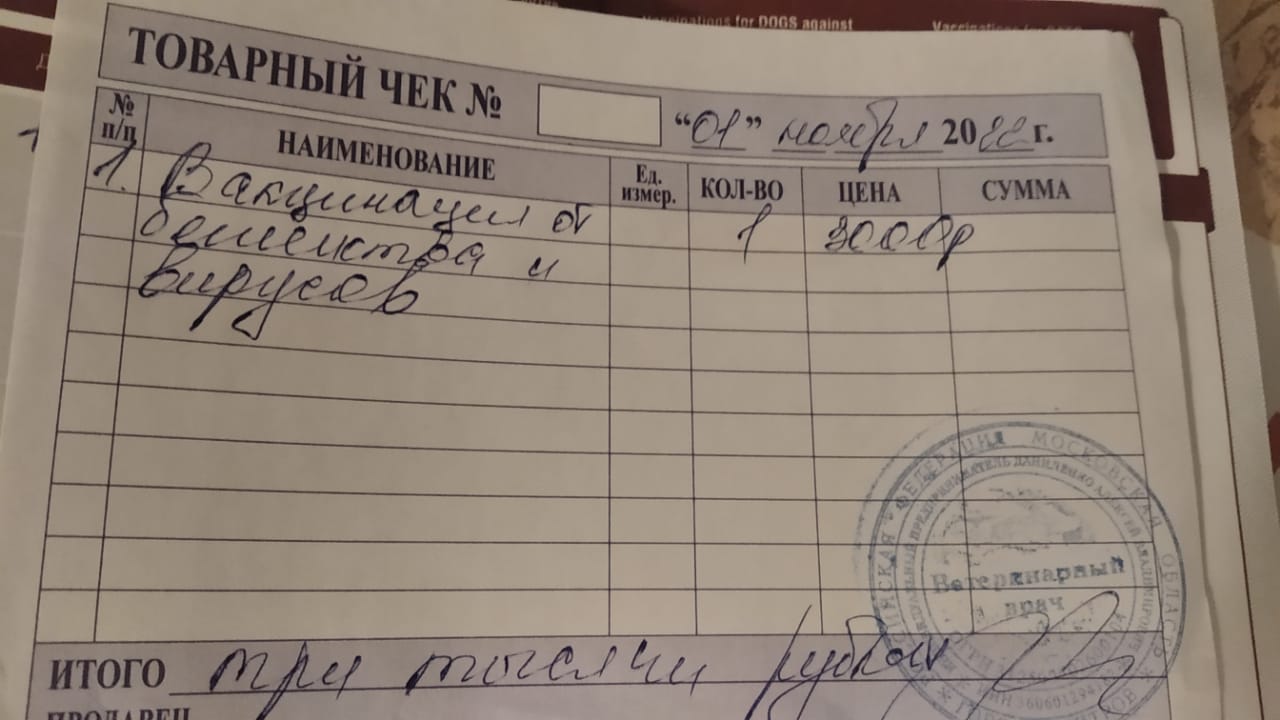 Vaccinations for DOGS against
ТОВАРНЫЙ ЧЕК № "01" ноября 2022 г.
№ п/п НАИМЕНОВАНИЕ Ед. измер. КОЛ-ВО ЦЕНА СУММА
1. Вакцинация от 1 3000р
бешенства и
вирусов
РОССИЙСКАЯ ФЕДЕРАЦИЯ МОСКОВСКАЯ ОБЛАСТЬ
ИНДИВИДУАЛЬНЫЙ ПРЕДПРИНИМАТЕЛЬ ДАНИЛЕНКО АЛЕКСЕЙ ВЛАДИМИРОВИЧ
Ветеринарный
врач
ИТОГО три тысячи рублей
ПРОДАВЕЦ